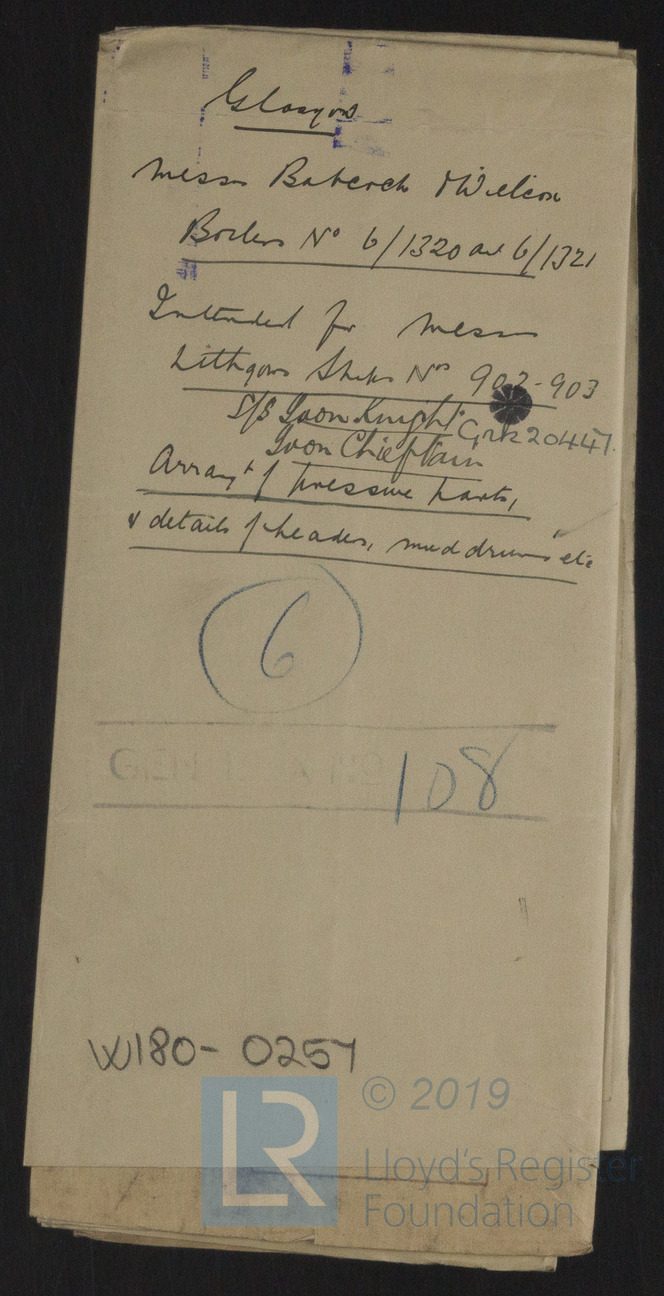 Glasgow
Messrs Babcock & Wilcox
Boilers Nº 6/1320 and 6/1321
Intended for Messrs
Lithgows Ships Nos 902-903
S/S Ivon Knight. Grk 20447.
Ivon Chieftain
Arrangt of pressure parts,
& details of headers, mud drums etc
6
108
W180-0257
© 2019
LR
Lloyd's Register
Foundation